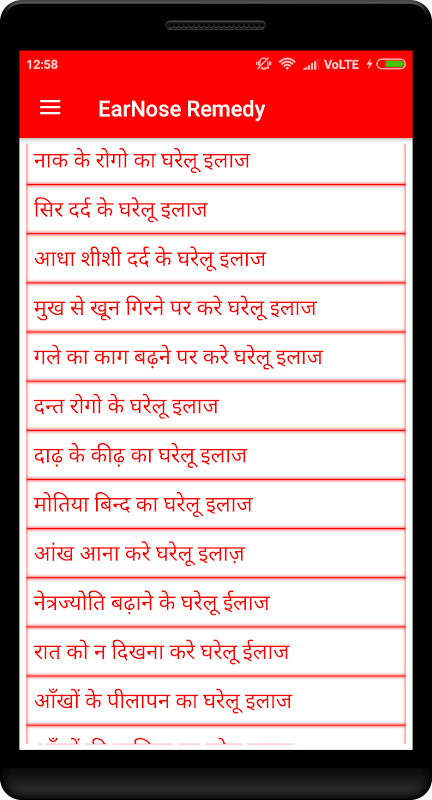 12:58 VoLTE
EarNose Remedy
नाक के रोगो का घरेलू इलाज
सिर दर्द के घरेलू इलाज
आधा शीशी दर्द के घरेलू इलाज
मुख से खून गिरने पर करे घरेलू इलाज
गले का काग बढ़ने पर करे घरेलू इलाज
दन्त रोगो के घरेलू इलाज
दाढ़ के कीढ़ का घरेलू इलाज
मोतिया बिन्द का घरेलू इलाज
आंख आना करे घरेलू इलाज़
नेत्रज्योति बढ़ाने के घरेलू ईलाज
रात को न दिखना करे घरेलू ईलाज
आँखों के पीलापन का घरेलू इलाज